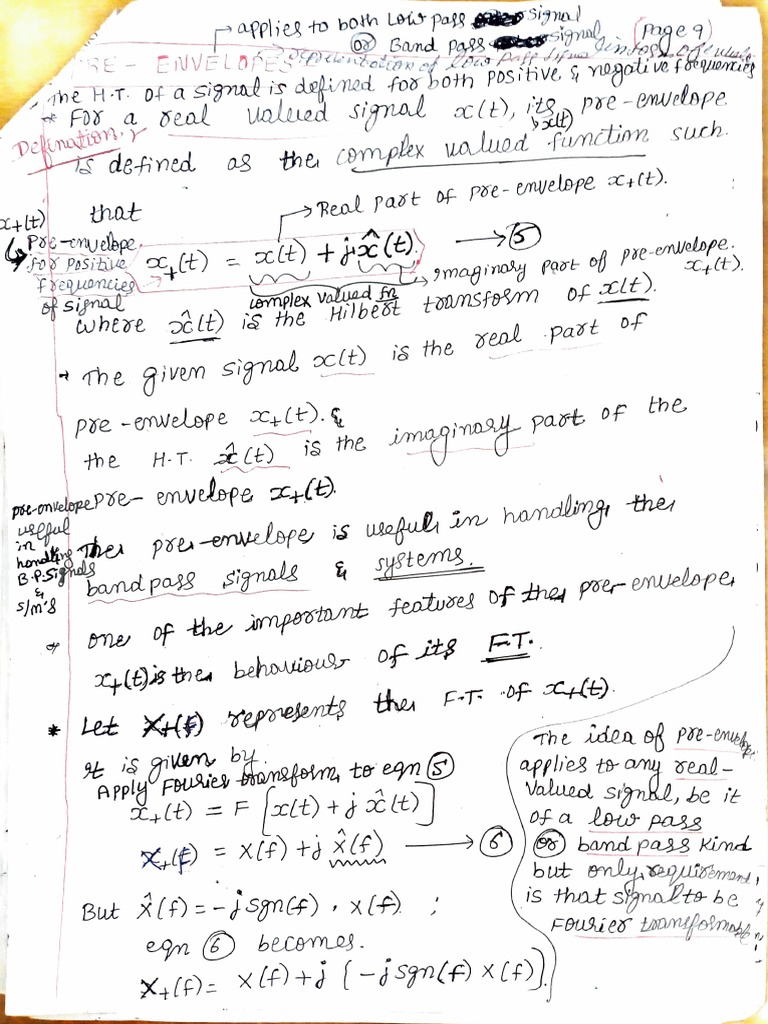 applies to both Low pass signal
(Page 9)
or Band pass signal
PRE - ENVELOPES
representation of Low pass
- The H.T. of a signal is defined for both positive & negative frequencies
* For a real valued signal x(t), its pre-envelope
x(t)
Defination
is defined as the complex valued function such
that
Real part of pre-envelope x+(t).
x+(t)
Pre-envelope
for positive
frequencies
of signal
x+(t) = x(t) + j x̂(t). → 5
imaginary part of pre-envelope.
x+(t).
complex valued fn
where x̂(t) is the Hilbert transform of x(t).
The given signal x(t) is the real part of
pre-envelope x+(t). &
the H.T. x̂(t) is the imaginary part of the
pre-envelope x+(t).
pre-envelope
useful
in
handling
B.P. Signals
&
s/m's
The pre-envelope is useful in handling the
bandpass signals & systems.
one of the important features of the pre-envelope
x+(t) is the behaviour of its F.T.
* Let X+(f) represents the F.T. of x+(t).
It is given by
Apply Fourier transform to eqn 5
x+(t) = F [x(t) + j x̂(t)]
X+(f) = X(f) + j X̂(f) → 6
But X̂(f) = -j sgn(f) . X(f) ;
eqn 6 becomes.
X+(f) = X(f) + j {-j sgn(f) X(f)}.
The idea of pre-envelope
applies to any real-
valued signal, be it
of a low pass
or band pass kind
but only requirement
is that signal to be
Fourier transformable